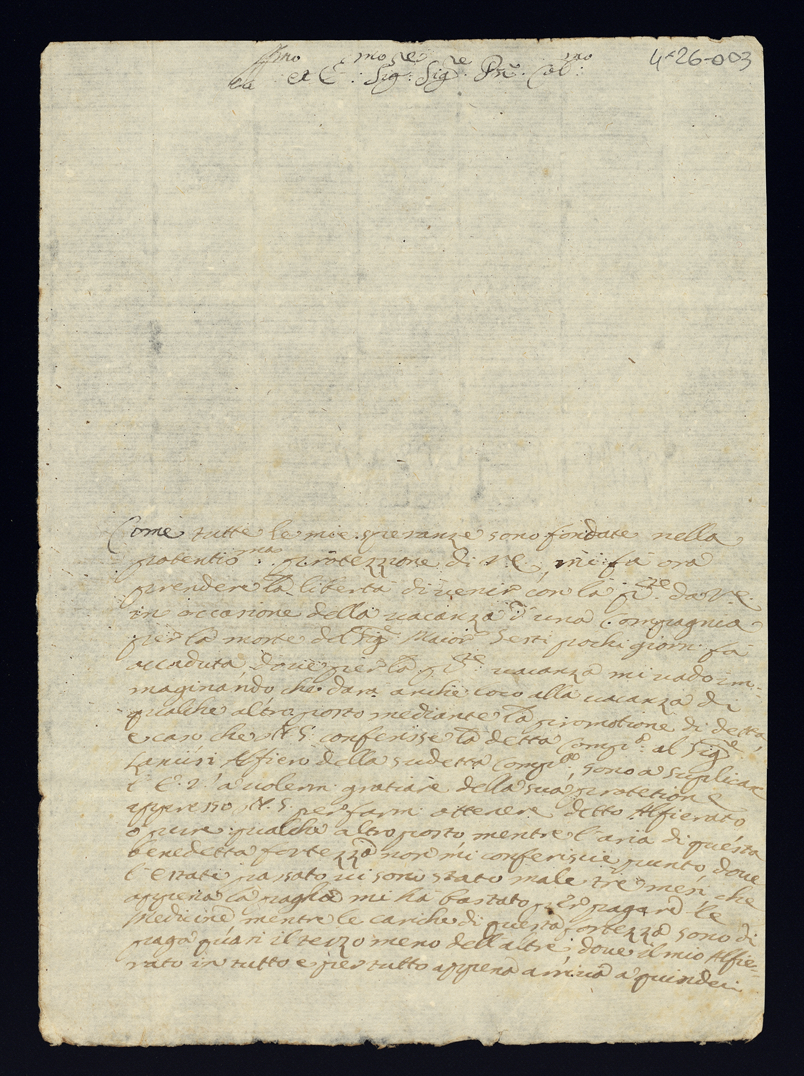 4-26-003
Ill.mo et E.mo Sig.re Sig.re Pne Col.mo
Come tutte le mie speranze sono fondate nella
potentio.ma protezzione di V.E. mi fa ora
prendere la libertà di venir con la p.nte da V.E.
in occasione della vacanza d'una Compagnia
per la morte del Sig.r Maior Sesti pochi giorni fa
accaduta, dove per la p.nte vacanza mi vado im-
maginando che darà anche loco alla vacanza di
qualche altro posto mediante la promotione di detta,
e caso che N.S. conferisse la detta Comp.a al Sig.re
Alfiero della sudetta Comp.a, sono a suplicare
l'E.V. a volermi gratiare della sua protetione
appresso N.S. per farmi ottenere detto Alfierato
o pure qualche altro posto mentre l'aria di questa
benedetta fortezza non mi conferiscie punto, dove
l'Estate passato vi sono stato male tre mesi che
appena la paga mi ha bastato per pagare le
Medicine mentre le cariche di questa fortezza sono di
paga quasi il terzo meno dell'altre, dove il mio Alfie-
rato in tutto e per tutto appena arriva a quindeci